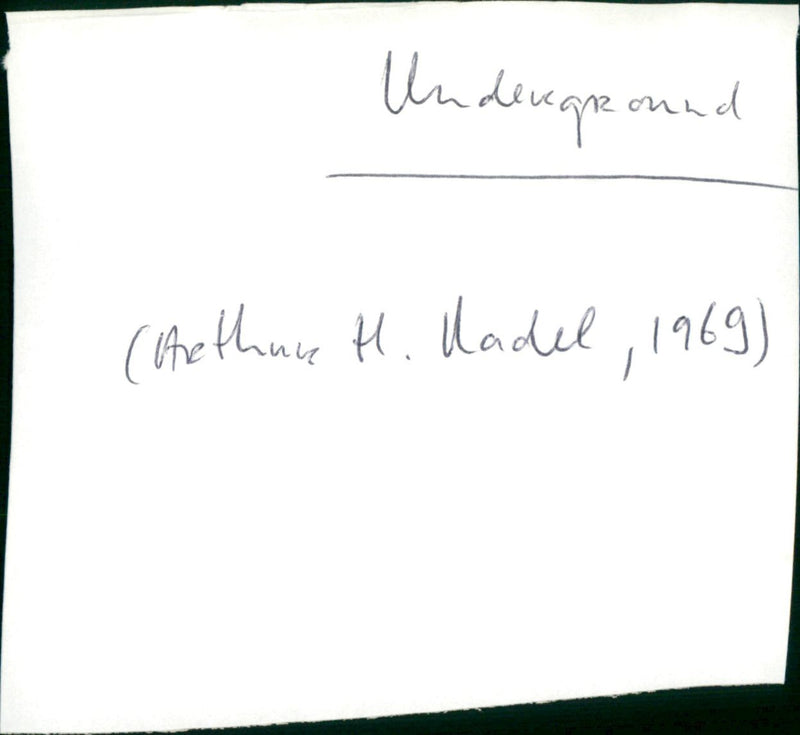 Underground
(Arthur H. Nadel, 1969)